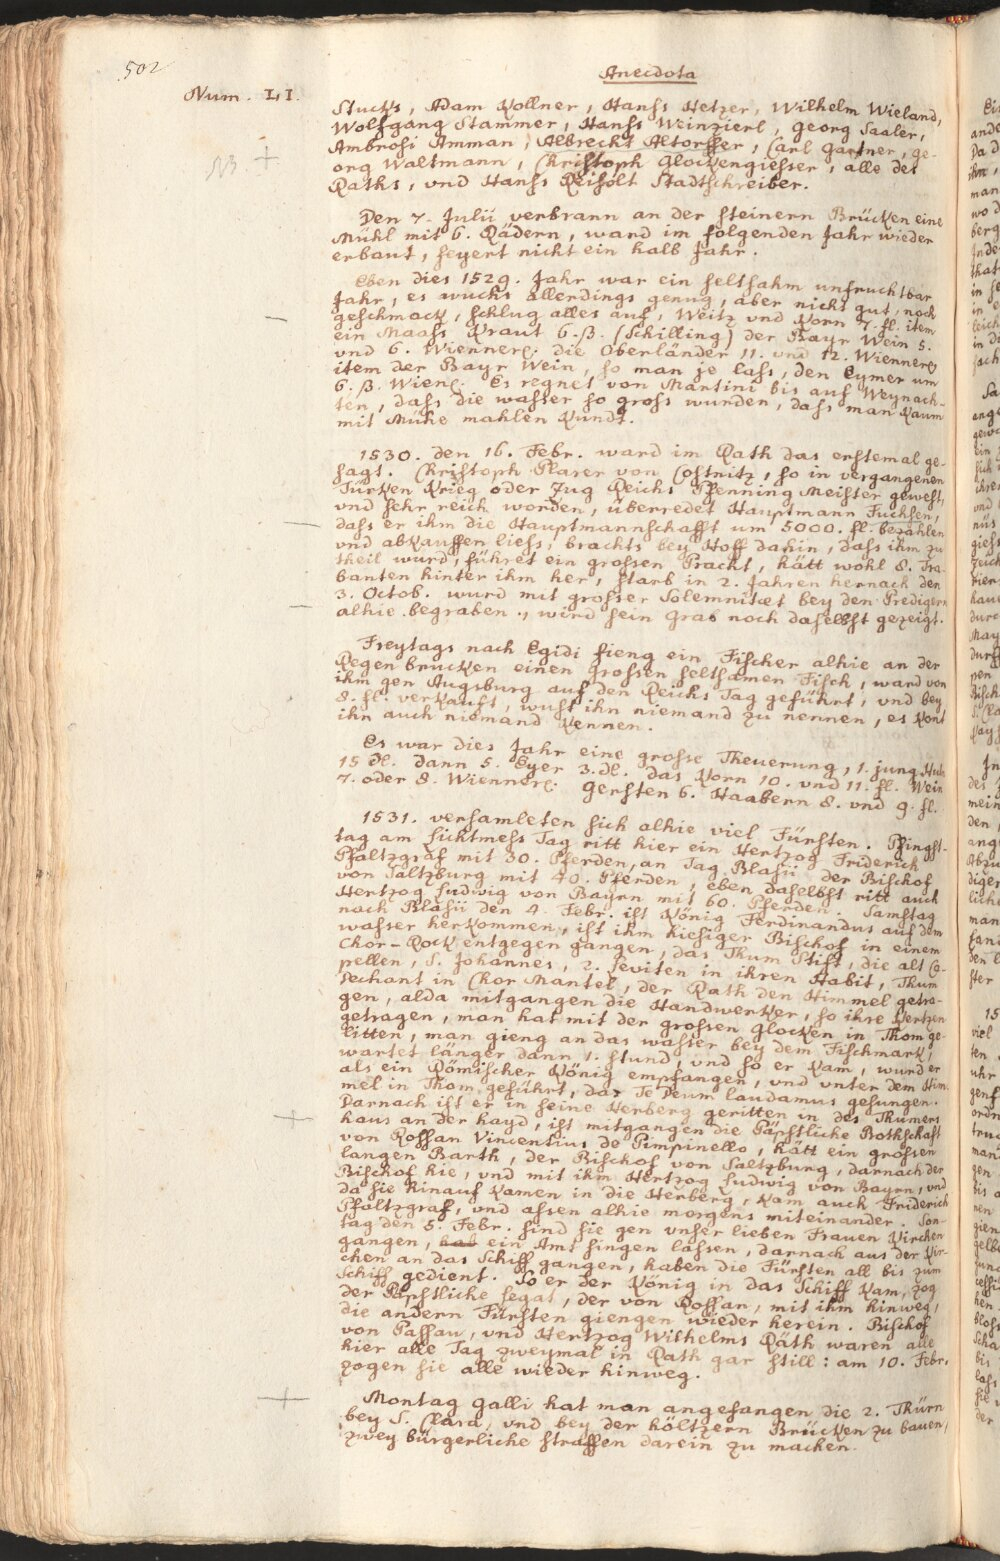 502
Anecdota
Num. LI.
Stucks, Adam Kollner, Hanss Hetzer, Wilhelm Wieland,
Wolfgang Stammer, Hanss Weinzierl, Georg Saaler,
Ambrosi Amman, Albrecht Altorffer, Carl Gartner, Ge-
org Waltmann, Christoph Glockengiesser, alle des
NB
Raths, vnd Hanss Reisolt Stadtschreiber.
Den 7. Julii verbrann an der steinern Brücken eine
Mühl mit 6. Rädern, ward im folgenden Jahr wieder
erbaut, feyert nicht ein halb Jahr.
Eben dies 1529. Jahr war ein seltsahm unfruchtbar
Jahr, es wuchs allerdings genug, aber nicht gut, noch
geschmack, schlug alles auf, Weitz vnd Korn 7. fl. item
ein Maass Kraut 6. ß. (Schilling) der Bayr Wein 5.
vnd 6. Wiennerl. die Oberländer 11. vnd 12. Wiennerl.
item der Bayr Wein, so man je lass, den Eymer um
6. ß. Wienl. Es regnet von Martini bis auf Weynach-
ten, dass die wasser so gross wurden, dass man kaum
mit Mühe mahlen kundt.
1530. den 16. Febr. ward im Rath das erstemal ge-
sagt. Christoph Plarer von Costnitz, so in vergangenen
Türken Krieg oder Zug Reichs Pfenning Meister gewest,
vnd sehr reich worden, überredet Hauptmann Fuchsen,
dass er ihm die Hauptmannschafft um 5000. fl. bezahlen
vnd abkauffen liess, brachts bey Hoff dahin, dass ihm zu
theil wurd, führet ein grossen Pracht, hätt wohl 8. Tra-
banten hinter ihm her, starb in 2. Jahren hernach den
3. Octob. wurd mit grosser Solemnitæt bey den Predigern
alhie begraben., wird sein Grab noch daselbst gezeigt.
Freytags nach Egidi fieng ein Fischer alhie an der
Regen brucken einen grossen seltsamen Fisch, ward von
ihm gen Augsburg auf den Reichs Tag geführt, vnd bey
8. fl. verkauft, wust ihn niemand zu nennen, es kont
ihn auch niemand kennen.
Es war dies Jahr eine grosse Theuerung, 1. jung Huhn
15 dl. dann 5. Eyer 3. dl. das Korn 10. vnd 11. fl. Wein
7. oder 8. Wiennerl. Gersten 6. Haabern 8. vnd 9. fl.
1531. versamleten sich alhie viel Fürsten. Pfingst-
tag am Lichtmess Tag ritt hier ein Hertzog Friderich
Pfaltzgraf mit 30. Pferden, an Tag Blasii der Bischof
von Saltzburg mit 40. Pferden, eben daselbst ritt auch
Hertzog Ludwig von Bayrn mit 60. Pferden. Samstag
nach Blasii den 4. Febr. ist König Ferdinandus auf dem
wasser herkommen, ist ihm hiesiger Bischof in einem
Chor-Rock entgegen gangen, das Thum Stift, die alt Ca-
pellen, S. Johannes, 2. Leviten in ihren Habit, Thum
Dechant in Chor Mantel, der Rath den Himmel getra-
gen, alda mitgangen die Handwerker, so ihre Kertzen
getragen, man hat mit der grossen Glocken in Thom ge-
litten, man gieng an das wasser bey dem Fischmark,
wartet länger dann 1. stund, vnd so er kam, wurd er
als ein Römischer König empfangen, vnd vnter dem Him-
mel in Thom geführt, das Te Deum laudamus gesungen.
Darnach ist er in seine Herberg geritten in des Thumers
haus an der hayd, ist mitgangen die Päpstliche Bothschaft
von Rossan Vincentius de Pimpinello, hätt ein grossen
langen Barth, der Bischof von Saltzburg, darnach der
Bischof hie, vnd mit ihm Hertzog Ludwig von Bayrn, vnd
da sie hinauf kamen in die Herberg, kam auch Friderich
Pfaltzgraf, vnd assen alhie morgens miteinander. Son-
tag den 5. Febr. sind sie gen vnser lieben Frauen Kirchen
gangen, hab ein Amt singen lassen, darnach aus der Kir-
chen an das Schiff gangen, haben die Fürsten all bis zum
Schiff gedient. So er der König in das Schiff kam, zog
der Päpstliche Legat, der von Rossan, mit ihm hinweg,
die andern Fürsten giengen wieder herein. Bischof
von Passau, vnd Hertzog Wilhelms Räth waren alle
hier alle Tag zweymal in Rath gar still: am 10. Febr.
zogen sie alle wieder hinweg.
Montag Galli hat man angefangen die 2. Thürn
bey S. Clara, vnd bey der höltzern Brücken zu bauen,
zwey bürgerliche straffen darein zu machen.